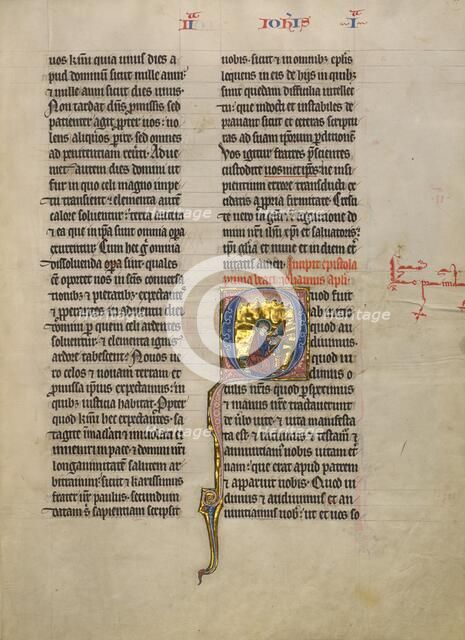 II IOHIS I
uos karissimi quia unus dies a
pud dominum sicut mille anni
& mille anni sicut dies unus.
Non tardat dns promissis sed
patienter agit propter uos: no
lens aliquos perire sed omnes
ad penitentiam reuerti. Adue
niet autem dies domini ut
fur in quo celi magno impe
tu transient: elementa autem
calore soluentur: terra autem
& ea que in ipsa sunt omnia
exurentur. Cum hec omnia
dissoluenda sunt: quales
oportet nos in sanctis conuersa
tionibus & pietatibus expectantes
& properantes in aduentum diei
domini per quem celi ardentes
soluentur & elementa ignis
ardore tabescent: Nouos ue
ro celos & nouam terram et
promissa ipsius expectamus: in
quibus iusticia habitat. Propter
quod karissimi hec expectantes: sa
tagite immaculati & inuiolati ei
inueniri in pace: & domini nostri
longanimitatem salutem ar
bitramini: sicut & karissimus
frater noster paulus: secundum
datam sibi sapientiam scripsit
uobis: sicut & in omnibus epistolis
loquens in eis de hiis in quibus
sunt quedam difficilia intellec
tu: que indocti et instabiles de
prauant sicut et ceteras scriptu
ras ad suam ipsorum perditionem
Vos igitur fratres prescientes
custodite uosmetipsos: ne insi
pientium errore transducti ex
cidatis a propria firmitate. Cresci
te uero in gratia & cognitione do
mini nostri ihu xpi et saluatoris:
ipsi gloria et nunc et in diem et
ternitatis amen. Incipit epistola
prima beati iohannis apli
Quod fuit
ab inicio:
quod au
diuimus: &
quod ui
dimus o
culis nostris: quod perspeximus
et manus nostre tractauerunt
de uerbo uite: et uita manifesta
ta est: & uidimus & testamur &
annuntiamus uobis uitam eter
nam: que erat apud patrem
& apparuit nobis. Quod ui
dimus & audiuimus et an
nuntiamus uobis: ut et uos so